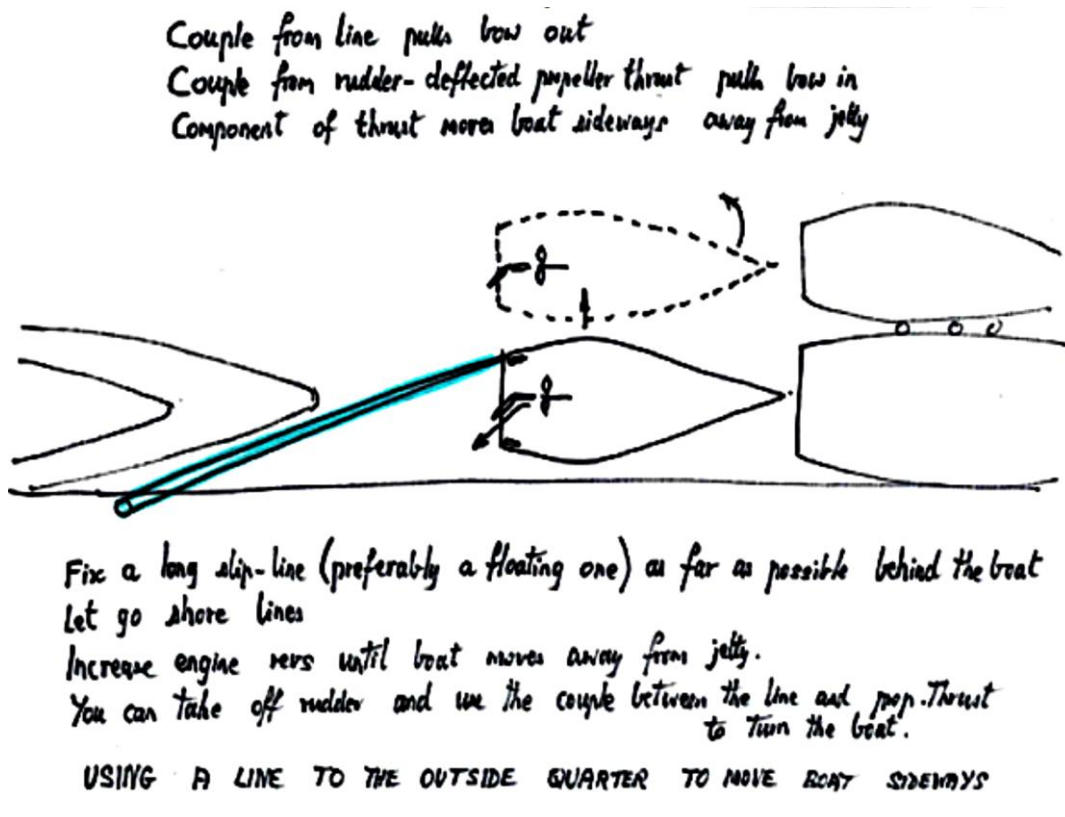 Couple from line pulls bow out
Couple from rudder-deflected propeller thrust pulls bow in
Component of thrust moves boat sideways away from jetty
Fix a long slip-line (preferably a floating one) as far as possible behind the boat
Let go shore lines
Increase engine revs until boat moves away from jetty.
You can take off rudder and use the couple between the line and prop.Thrust
to turn the boat.
USING A LINE TO THE OUTSIDE QUARTER TO MOVE BOAT SIDEWAYS